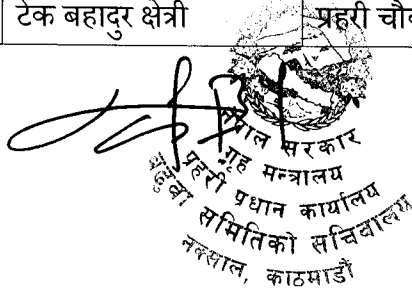 टेक बहादुर क्षेत्री
प्रहरी चौ
नेपाल सरकार
गृह मन्त्रालय
प्रहरी प्रधान कार्यालय
समितिको सचिवालय
नक्साल, काठमाडौं